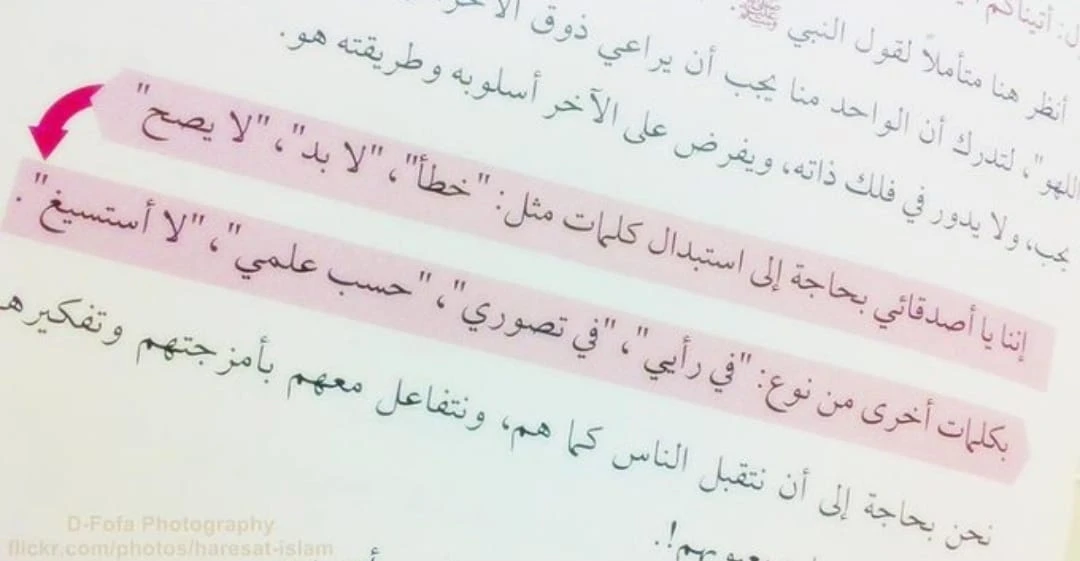 ل: أتيناكم
أنظر هنا متأملاً لقول النبي ﷺ
اللهو"، لتدرك أن الواحد منا يجب أن يراعي ذوق
يجب، ولا يدور في فلك ذاته، ويفرض على الآخر أسلوبه وطريقته هو.
إننا يا أصدقائي بحاجة إلى استبدال كلمات مثل: "خطأ"، "لا بد"، "لا يصح"
بكلمات أخرى من نوع: "في رأيي"، "في تصوري"، "حسب علمي"، "لا أستسيغ".
نحن بحاجة إلى أن نتقبل الناس كما هم، ونتفاعل معهم بأمزجتهم وتفكيرهـ
D-Fofa Photography
flickr.com/photos/haresat-islam